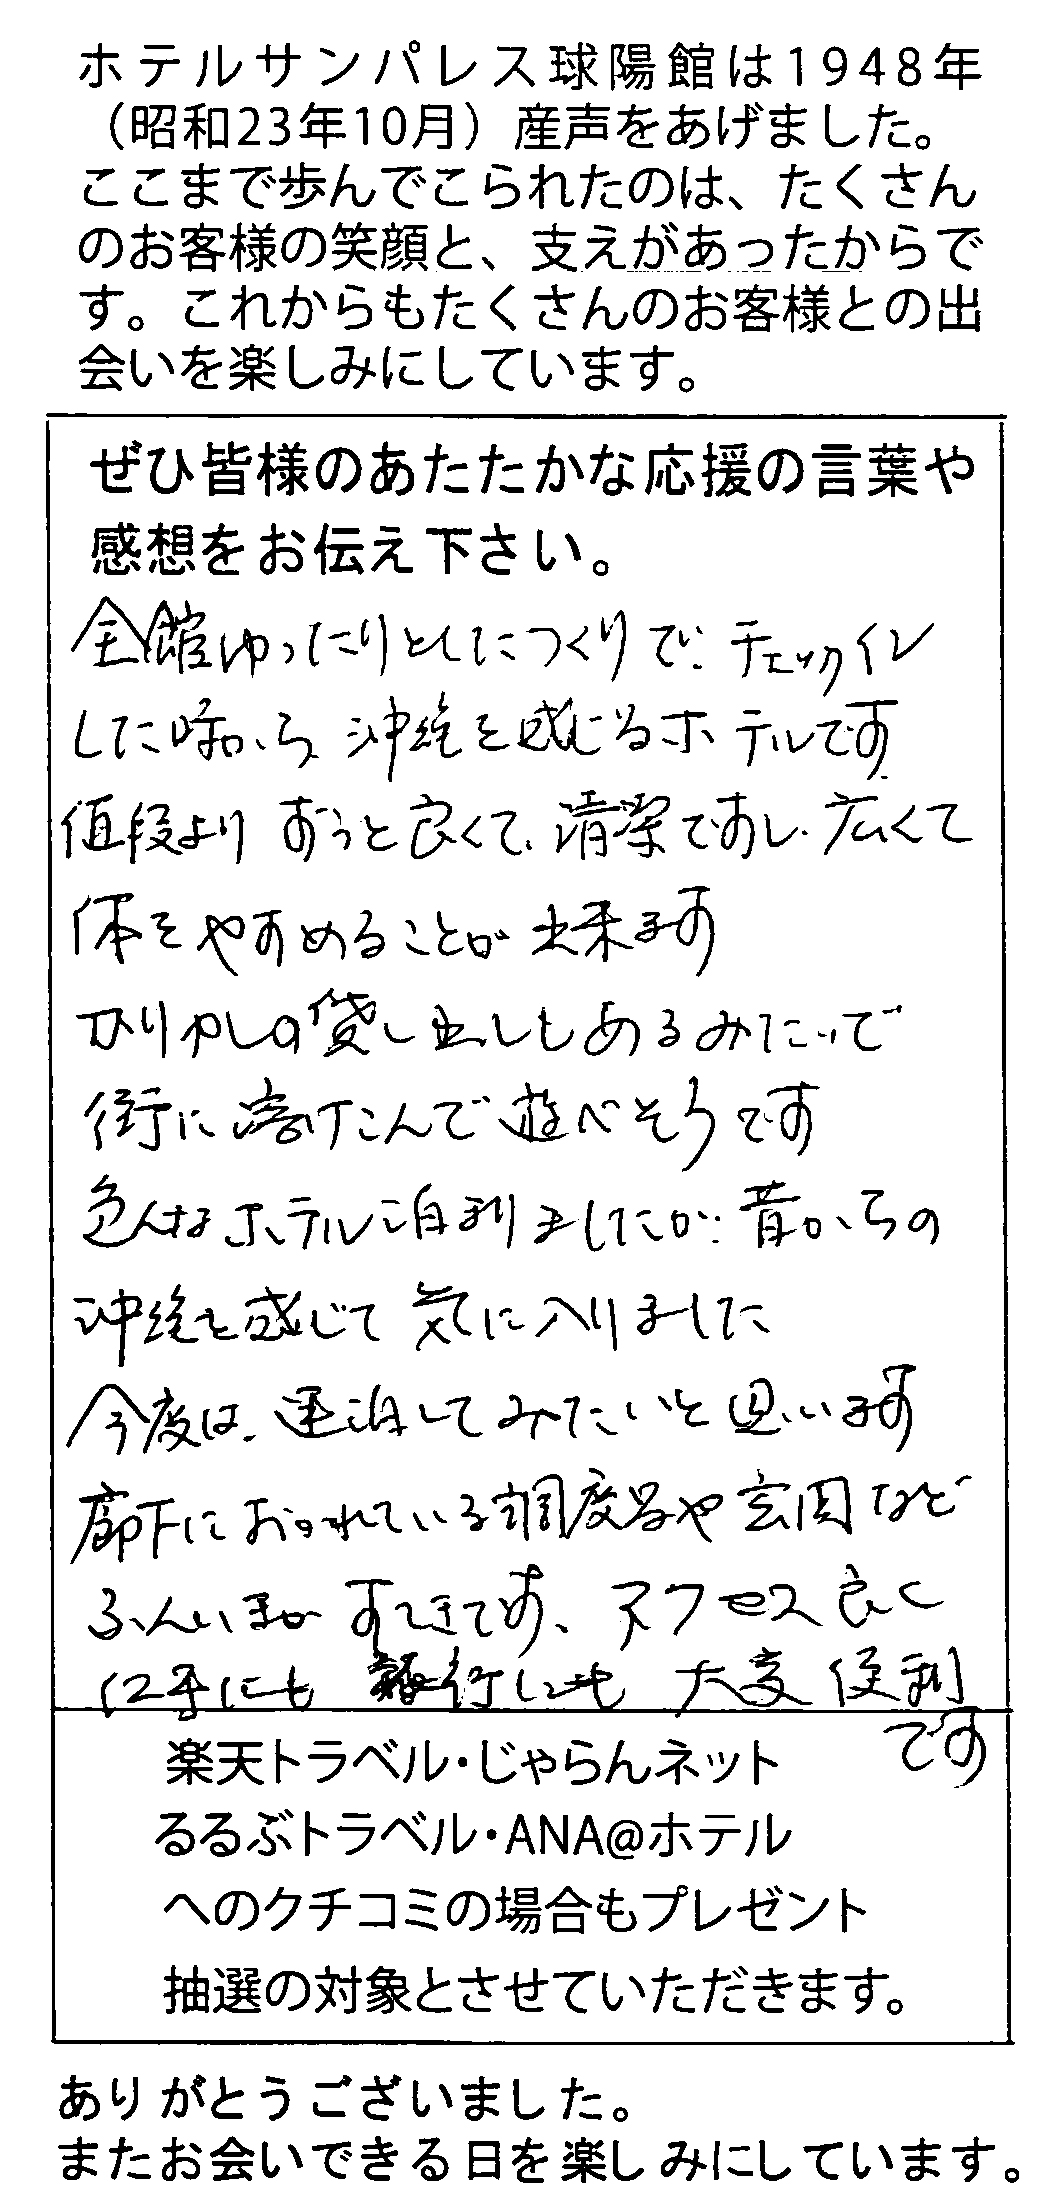 ホテルサンパレス球陽館は1948年
（昭和23年10月）産声をあげました。
ここまで歩んでこられたのは、たくさん
のお客様の笑顔と、支えがあったからで
す。これからもたくさんのお客様との出
会いを楽しみにしています。
ぜひ皆様のあたたかな応援の言葉や
感想をお伝え下さい。
全館ゆったりとしたつくりで、チェックイン
した時から、沖縄を感じるホテルです
値段よりずっと良くて、清潔ですし、広くて
体をやすめることが出来ます
かりゆしの貸し出しもあるみたいで
街に溶けこんで遊べそうです
色んなホテル泊まりましたが、昔からの
沖縄を感じて気に入りました
今度は、連泊してみたいと思います
廊下におかれている調度品や玄関など
ふんいきがすてきです、アクセス良く
仕事にも旅行にも大変便利
です
楽天トラベル・じゃらんネット
るるぶトラベル・ANA@ホテル
へのクチコミの場合もプレゼント
抽選の対象とさせていただきます。
ありがとうございました。
またお会いできる日を楽しみにしています。